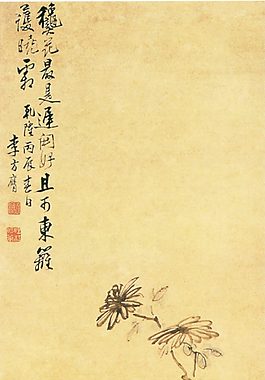 穠花最是遲開好且可東籬
護曉霜
乾隆丙辰春日
李方膺